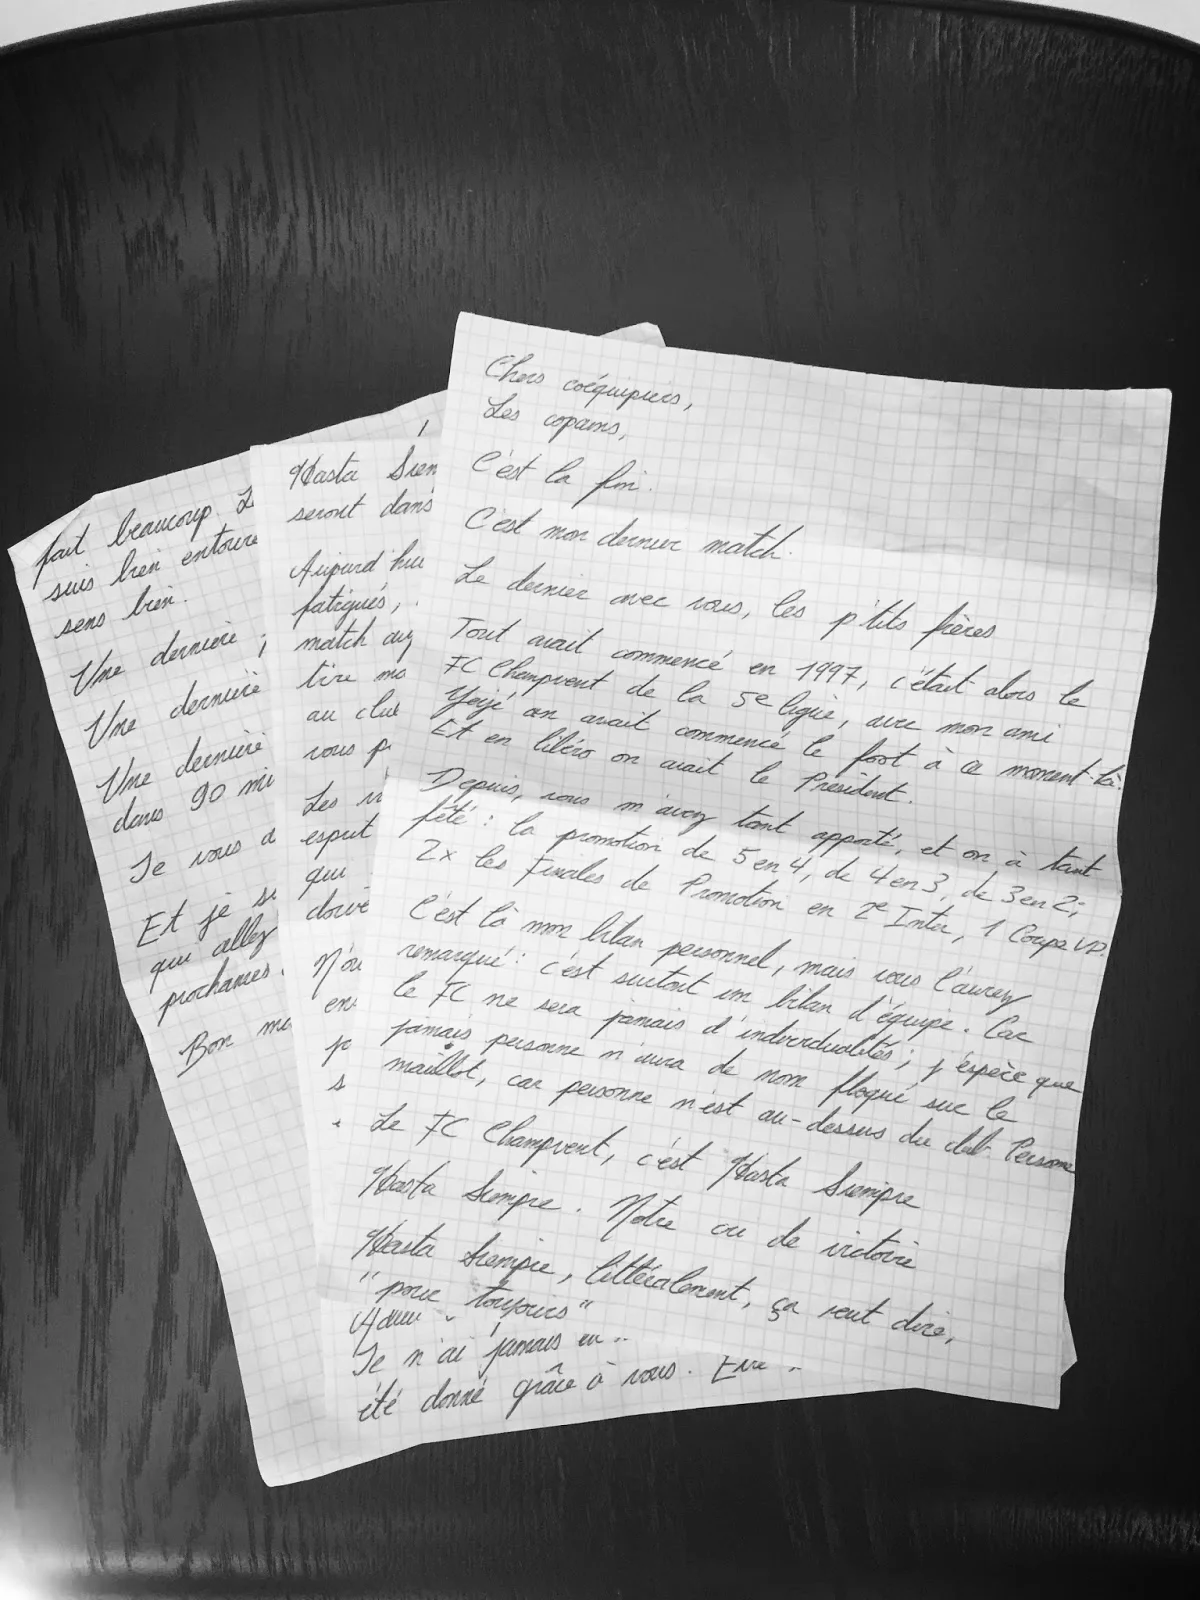 Chers coéquipiers,
Les copains,
C'est la fin.
C'est mon dernier match.
Le dernier avec vous, les p'tits frères
Tout avait commencé en 1997, c'était alors le
FC Champvent de la 5e ligue, avec mon ami
on avait commencé le foot à ce moment-là.
Et en libéro on avait le Président.
Depuis, vous m'avez tant apporté, et on a tant
fêté : la promotion de 5 en 4, de 4 en 3, de 3 en 2;
2x les Finales de Promotion en 2e Inter, 1 Coupe VD.
C'est là mon bilan personnel, mais vous l'aurez
remarqué : c'est surtout un bilan d'équipe. Car
le FC ne sera jamais d'individualités ; j'espère que
jamais personne n'aura de nom floqué sur le
maillot, car personne n'est au-dessus du club. Personne
Le FC Champvent, c'est Hasta Siempre
Hasta Siempre. Notre cri de victoire
Hasta Siempre, littéralement, ça veut dire,
"pour toujours"
Je n'ai jamais eu
été donné grâce à vous.
Hasta Siem
seront dans
Aujourd'hui
fatigués,
match auj
tire ma
au club
vous p
Les
esprit
qui
doive
N'ou
en
p
s
fait beaucoup
suis bien entouré
sens bien.
Une dernière
Une dernière
Une dernière
dans 90 mi
Je vous d
Et je s
qui allez
prochaines
Bon ma